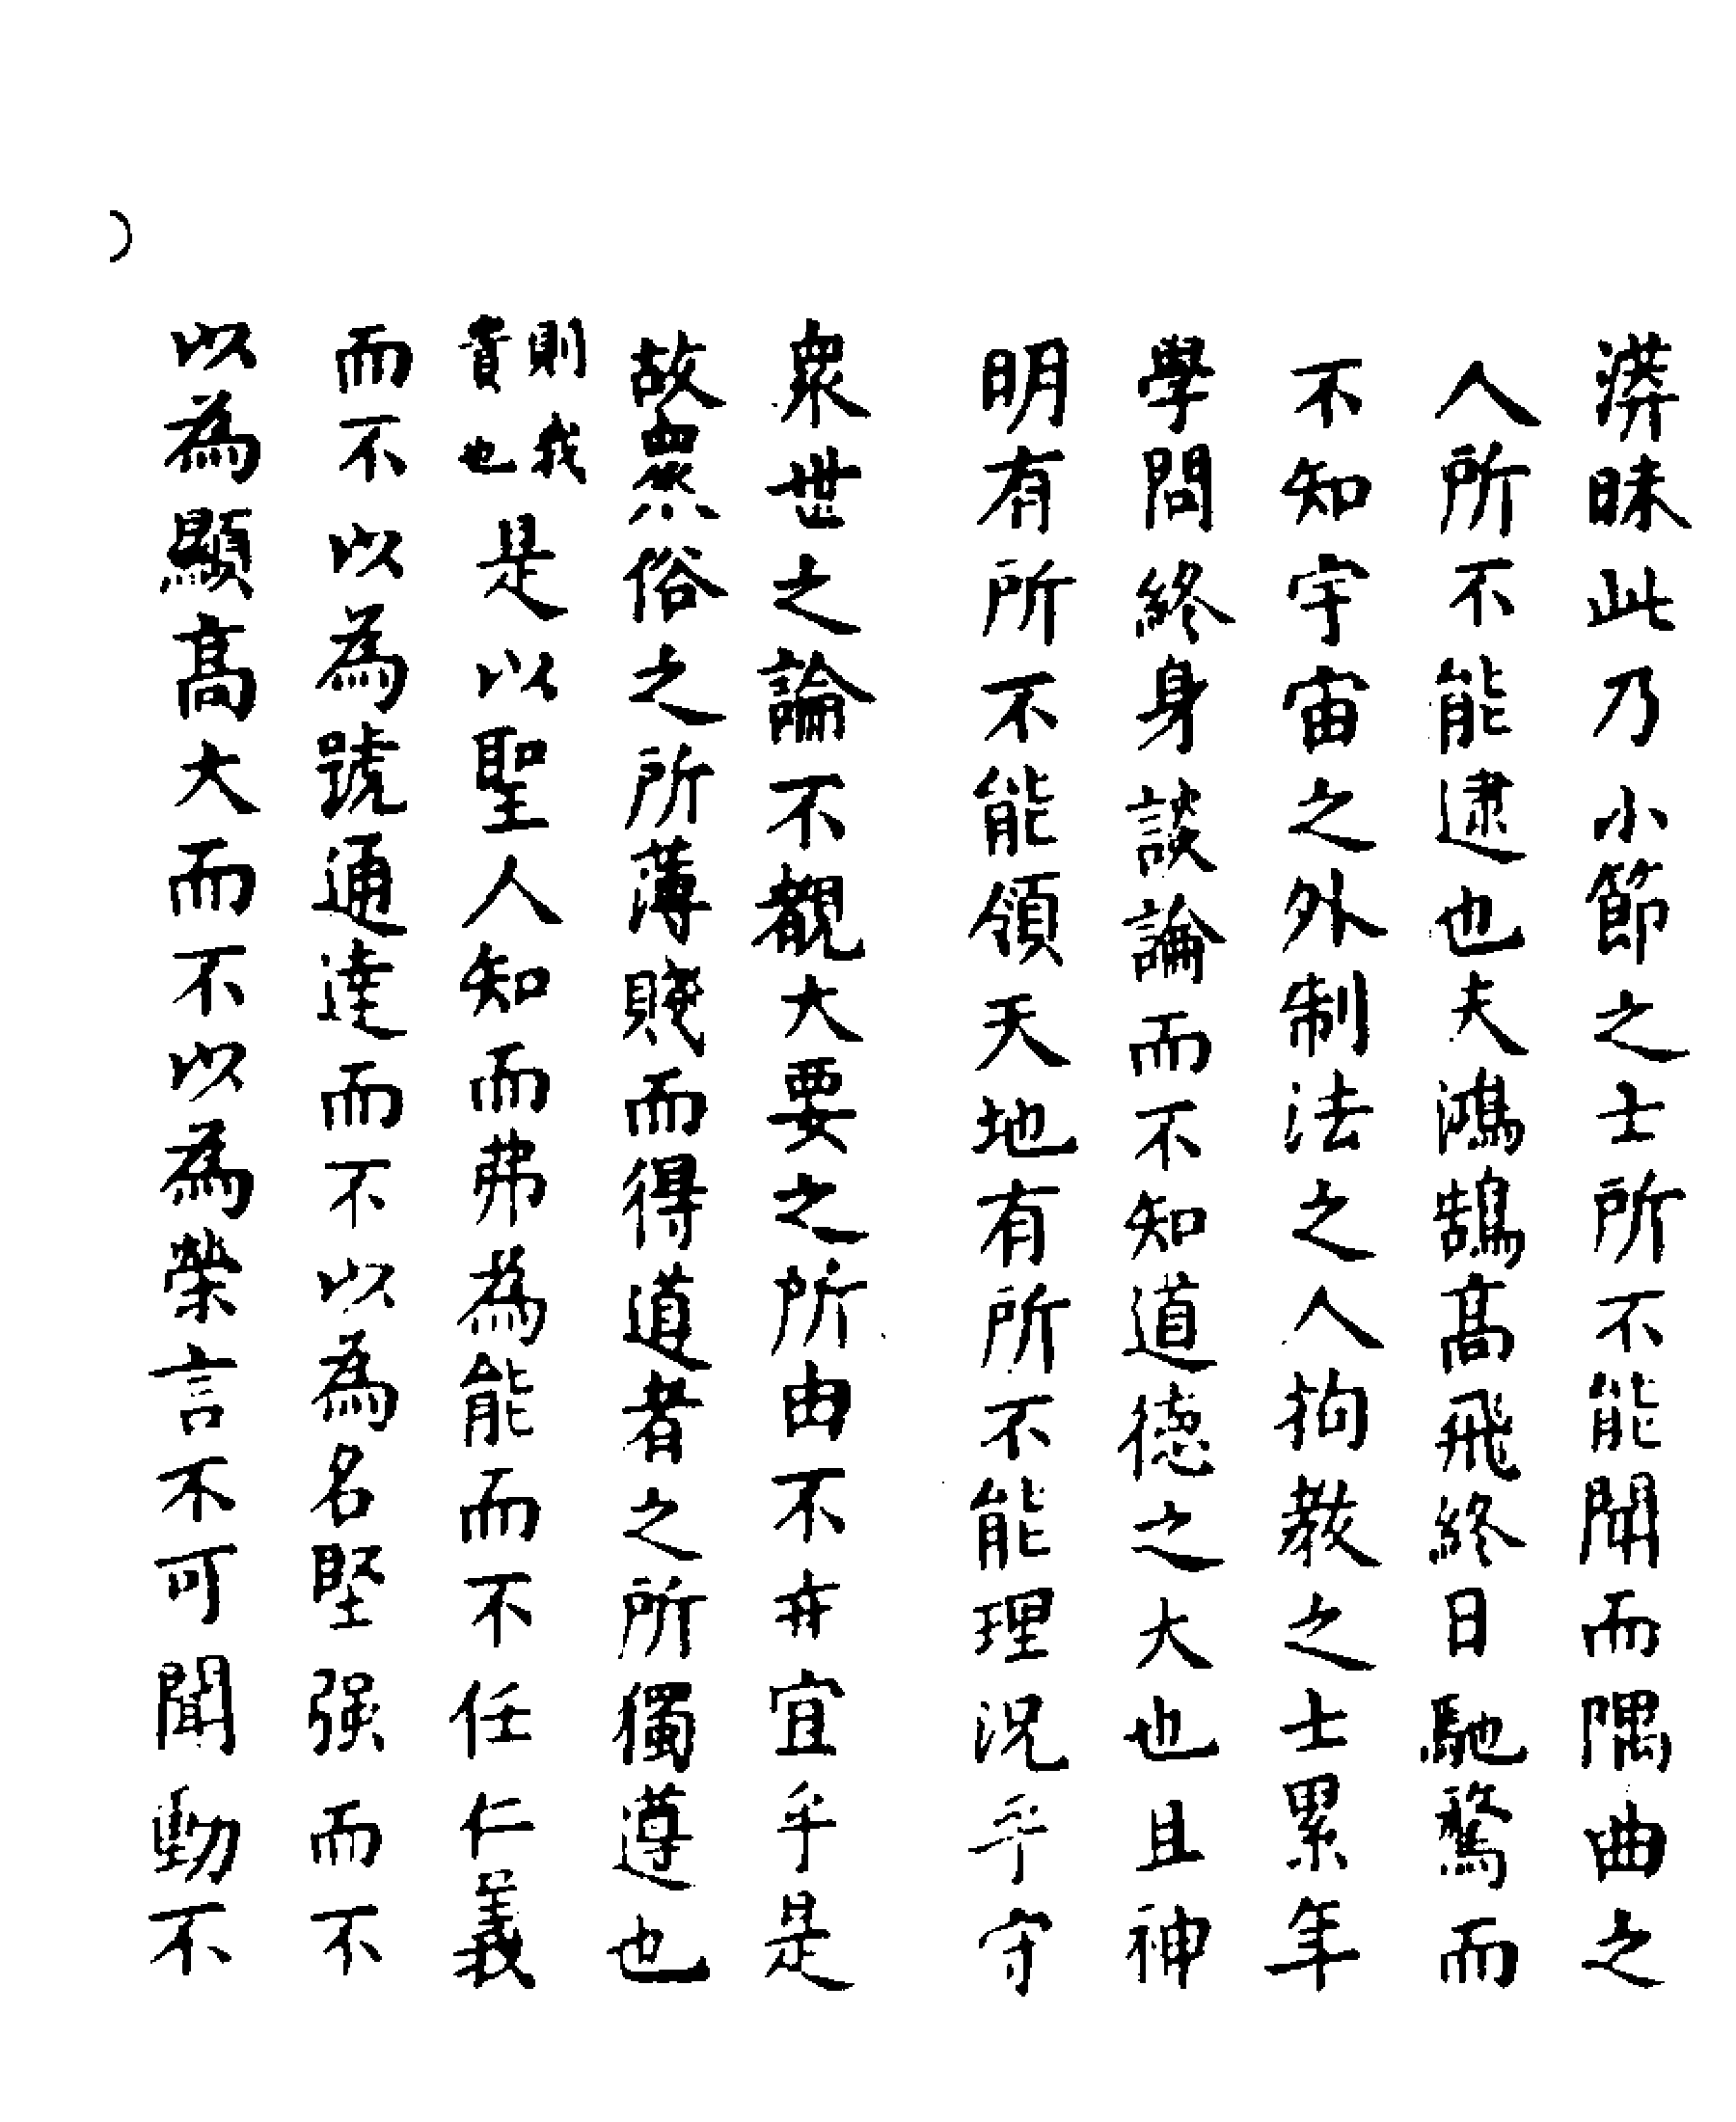 漭昧此乃小節之士所不能聞而隅曲之
人所不能逮也夫鴻鵠髙飛終日馳騖而
不知宇宙之外制法之人拘教之士累年
學問終身談論而不知道徳之大也且神
明有所不能領天地有所不能理況乎守
衆世之論不覩大要之所由不亦宜乎是
故衆俗之所薄賤而得道者之所獨遵也
則我貴也是以聖人知而弗為能而不任仁義
而不以為號通達而不以為名堅强而不
以為顯髙大而不以為榮言不可聞動不